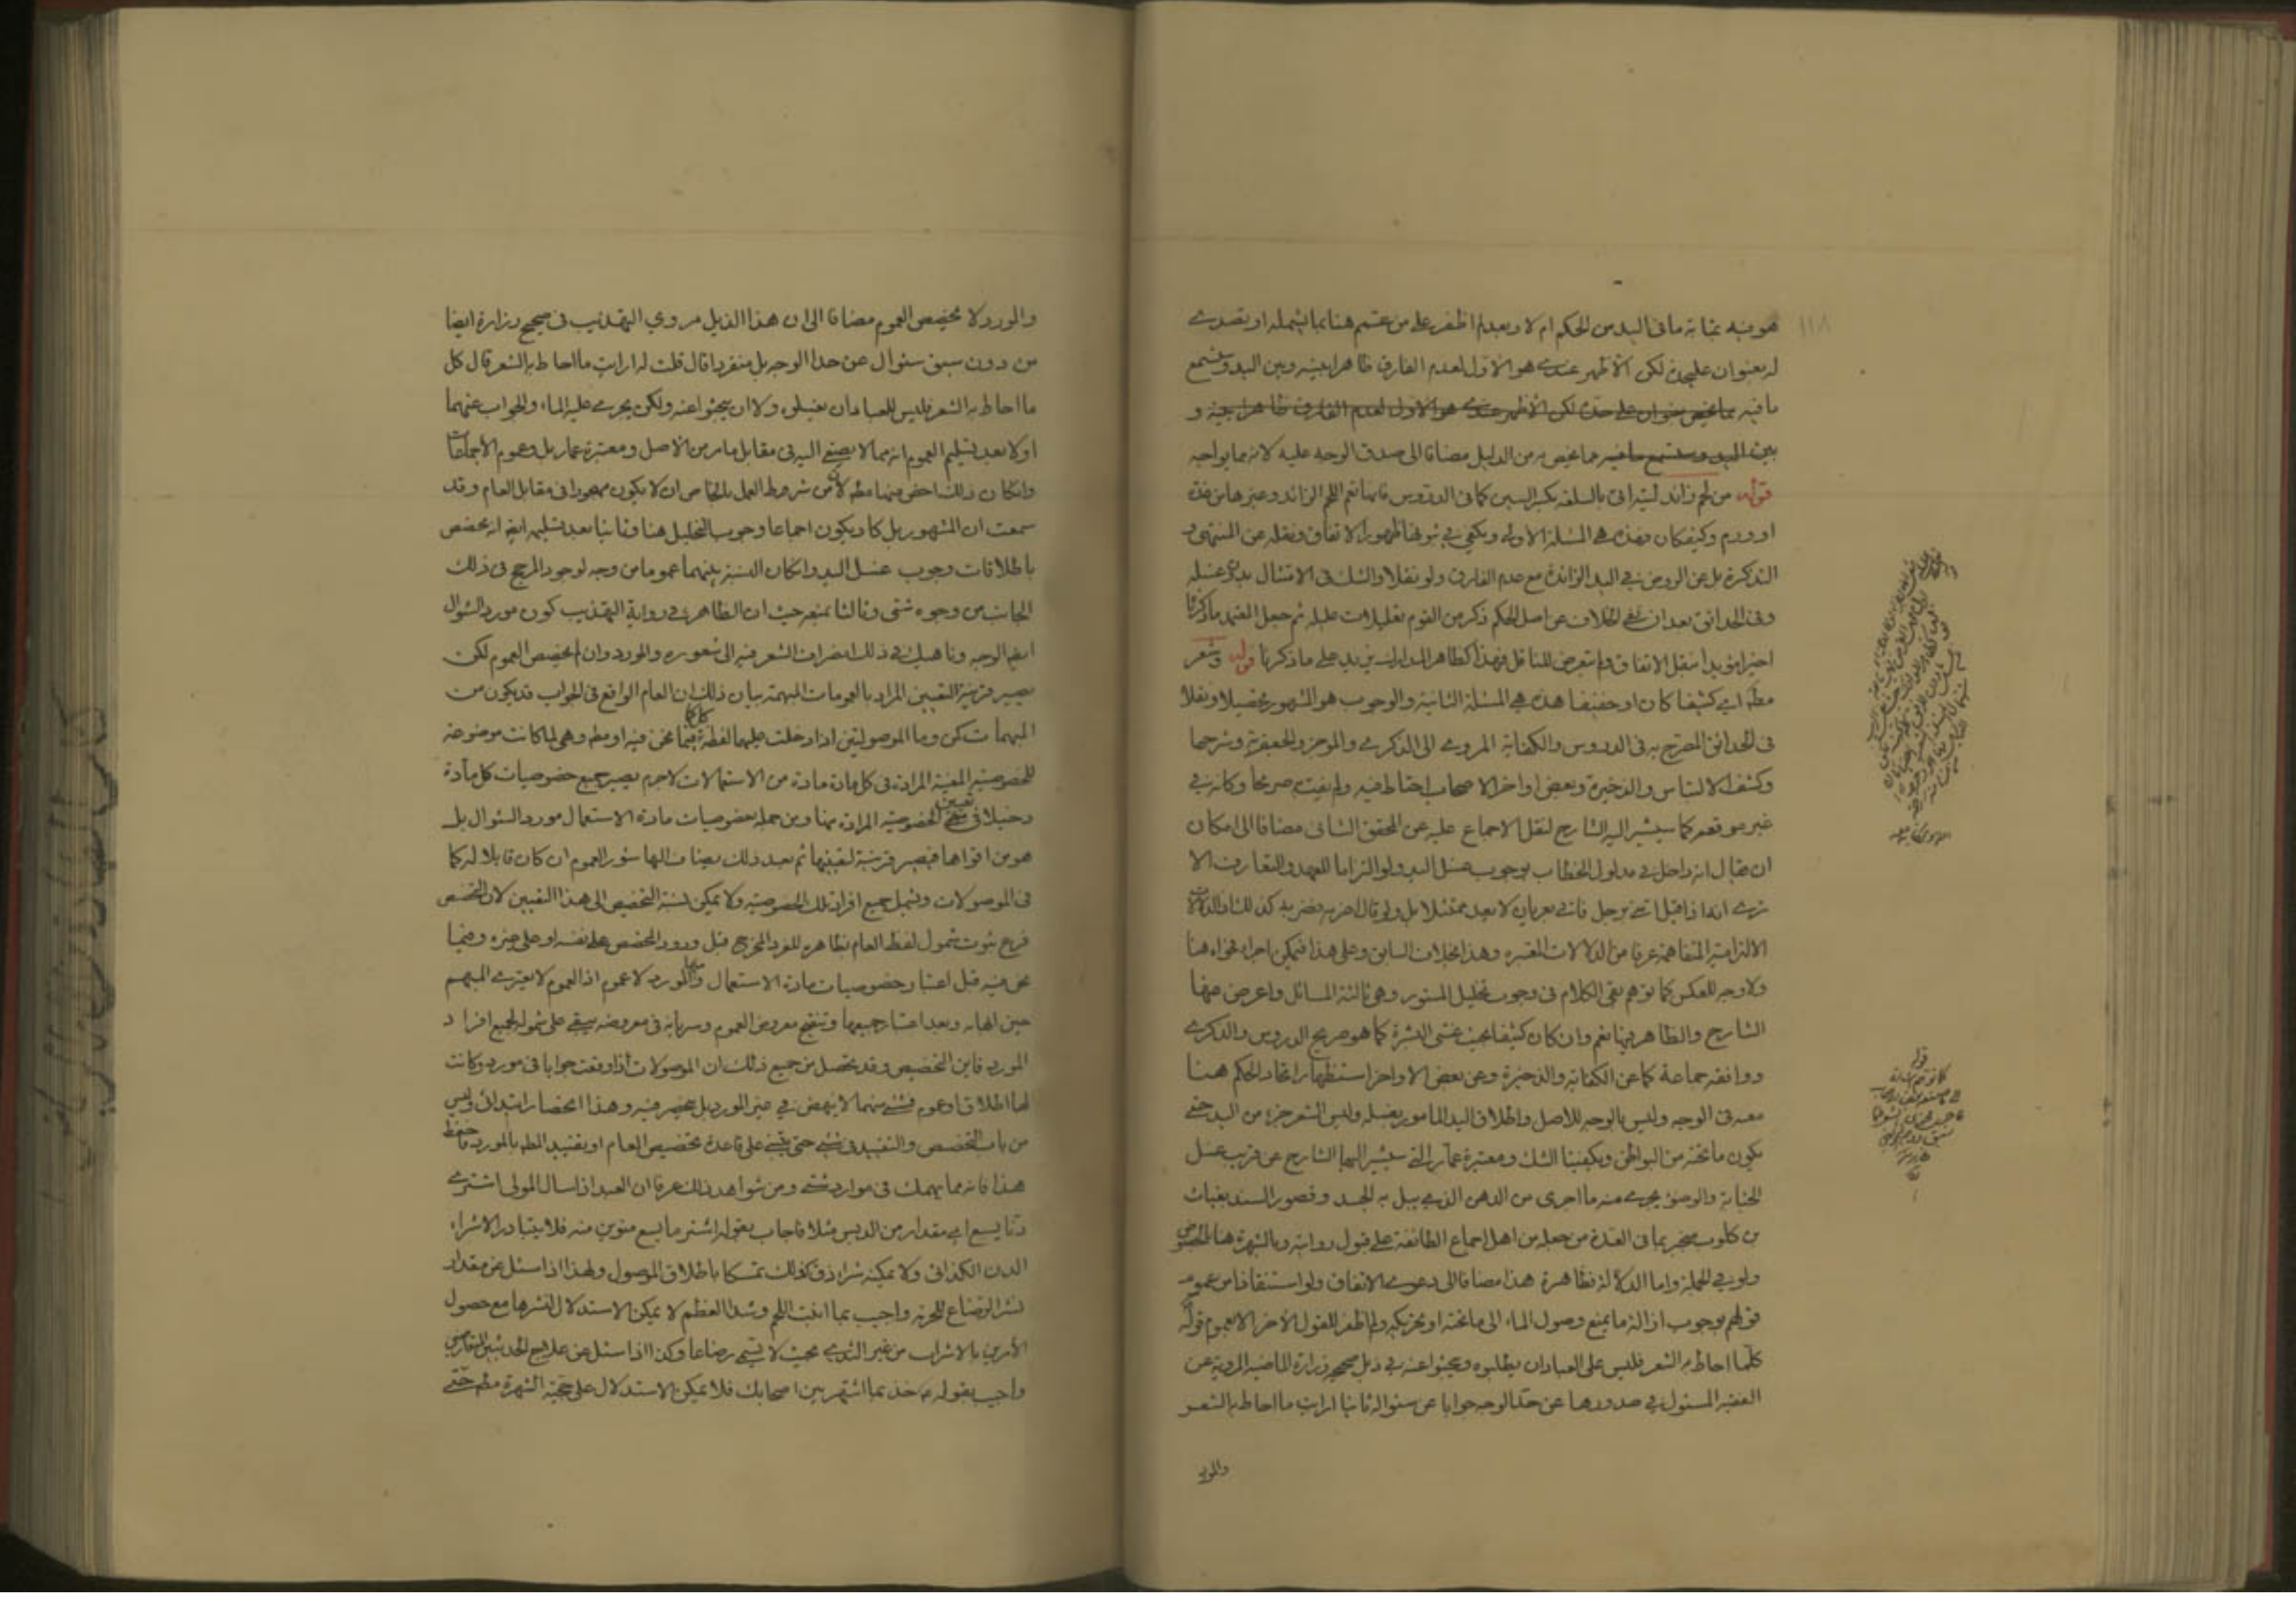 هو فيه بمثابة ما في اليد من الحكم ام لا وبعد لم اظفر على من عمم هنا بما يشمله او تصدى
له بعنوان عليحدة لكن الأظهر عندى هو الاول لعدم الفارق ظاهرا بينه وبين اليد وستسمع
ما فيه مما يخص بعنوان على حدة لكن الأظهر عندى هو الاول لعدم الفارق ظاهرا بينه و
بين اليد وستسمع ما فيه مما يخص به من الدليل مضافا الى صدق الوجه عليه لانه مما يواجه
قوله من لحم زائد بالسلعة بكسر السين كما في الدروس فانها تعم اللحم الزائد وغيرها من غدة
او ورم وكيف كان فهذه هي المسئلة الاولى ويكفي في ثبوتها ظهور الاتفاق ونقله عن المنتهى و
التذكرة بل عن الروض في اليد الزائدة مع عدم الفارق ولو نقلا والشك في الامتثال بدون غسله
وفي الحدائق بعد ان نفى الخلاف عن اصل الحكم ذكر من القوم تعليلات عليلة ثم جعل العمدة ما ذكرنا
اخيرا مؤيدا بنقل الاتفاق ولم يتعرض للناقل فهذا كظاهر المدارك يزيد على ما ذكرنا قوله وشعر
مطه اي كثيفا كان او خفيفا هذه هي المسئلة الثانية والوجوب هو المشهور تحصيلا ونقلا
في الحدائق المصرح به في الدروس والكفاية المروى الى الذكرى والموجز والجعفرية وشرحها
وكشف الالتباس والذخيرة وبعض اواخر الاصحاب احتاط فيه ولم يفت به صريحا وكانه في
غير موقعه كما سيشير اليه الشارح لنقل الاجماع عليه عن المحقق الثانى مضافا الى امكان
ان يقال انه داخل في مدلول الخطاب بوجوب غسل اليد ولو التزاما للعهد والتعارف الا
ترى انه اذا قيل ائتنى برجل فاتى بعريان لا يعد ممتثلا بل ولو قال اضربه فضربه كذلك والدلالات
الالتزامية المتفاهمة عرفا من الدلالات المعتبرة وهذا بخلاف السابق وعلى هذا فيمكن اجراء نحوه هنا
ولا وجه للعكس كما توهم بقى الكلام في وجوب تخليل المستور وهي ثالثة المسائل واعرض عنها
الشارح والظاهر فيها نعم وان كان كثيفا بحيث غشى البشرة كما هو صريح الدروس والذكرى
ووافقه جماعة كما عن الكفاية والذخيرة وعن بعض الاواخر استظهار اتحاد الحكم هنا
معه في الوجه وليس بالوجه للاصل واطلاق اليد المامور بغسله وليس الشعر جزء من اليد حتى
يكون ما تحته من البواطن ويكفينا الشك ومعتبرة عمار التي سيشير اليها الشارح عن قريب غسل
الجنابة والوضوء يجرى منه ما اجرى من الدهن الذى يبل به الجسد وقصور السند بغياث
بن كلوب منجبر بما في العدة من جعله من اهل اجماع الطائفة على قبول روايته وبالشهرة هنا بالخصوص
ولو في الجملة واما الدلالة فظاهرة هذا مضافا الى دعوى الاتفاق ولو استنقاذا من عموم
قولهم بوجوب ازالة ما يمنع وصول الماء الى ما تحته او تحريكه ولم اظفر للقول الآخر الا بعموم قوله
كلما احاط به الشعر فليس على العباد ان يطلبوه ويبحثوا عنه في ذيل صحيح زرارة الماضية المروية عن
الفقيه المسئول في صدورها عن حد الوجه جوابا عن سئواله ثانيا ارايت ما احاط به الشعر
والمورد
والمورد لا يخصص العموم مضافا الى ان هذا الذيل مروي التهذيب في صحيح زرارة ايضا
من دون سبق سئوال عن حد الوجه بل منفردا قال قلت له ارايت ما احاط به الشعر قال كل
ما احاط به الشعر فليس للعباد ان يغسلوه ولا ان يبحثوا عنه ولكن يجرى عليه الماء والجواب عنهما
اولا بعد تسليم العموم انه مما لا يصغى اليه في مقابل ما مر من الاصل ومعتبرة عمار بل وعموم الاجماعات
وانكان ذلك اخص منها مطه لان من شروط العمل بالخاص ان لا يكون مهجورا في مقابل العام وقد
سمعت ان المشهور بل كاد يكون اجماعا وجوب التخليل هنا وثانيا بعد تسليمه ايضا انه يخصص
باطلاقات وجوب غسل اليد وانكان النسبة بينهما عموما من وجه لوجود المرجح في ذلك
الجانب من وجوه شتى وثالثا بمنعه حيث ان الظاهر في رواية التهذيب كون مورد السئوال
ايضا الوجه وناهيك في ذلك انصراف الشعر فيه الى شعوره والمورد وان لم يخصص العموم لكن
يصير قرينة لتعيين المراد بالعمومات المبهمة بيان ذلك ان العام الواقع في الجواب قد يكون من
المبهمات كمن وما الموصولتين اذا دخلت عليهما لفظة كل كما فيما نحن فيه او مطه وهي لما كانت موضوعة
للخصوصية المعينة المرادة في كل مادة مادة من الاستعمالات لاجرم يصير جميع خصوصيات كل مادة
دخيلا في تعيين الخصوصية المرادة منها ومن جملة خصوصيات مادة الاستعمال مورد السئوال بل
هو من اقواها فيصير قرينة لتعيينها ثم بعد ذلك يضاف اليها سور العموم ان كان قابلا له كما
في الموصولات ويشمل جميع افراد تلك الخصوصية ولا يمكن نسبة التخصيص الى هذا التعيين لان التخصيص
فرع ثبوت شمول لفظ العام بظاهره للفرد المخرج قبل ورود المخصص على نفسه او على جزءه وفيما
نحن فيه قبل اعتبار خصوصيات مادة الاستعمال والمورد منها لا عموم اذ العموم لا يعترى المبهم
حين ابهامه وبعد اعتبار جميعها وتنقيح معروض العموم وسريانه في معروضه يبقى على شموله لجميع افراد
المورد فاين التخصيص وقد تحصل من جميع ذلك ان الموصولات اذا وقعت جوابا في مورد وكانت
لها اطلاق او عموم فشئ منهما لا ينهض في غير المورد بل ينحصر فيه وهذا انحصار ابتدائى وليس
من باب التخصيص والتقييد في شئ حتى يبتنى على قاعدة تخصيص العام او تقييد المطه بالمورد فاحفظ
هذا فانه مما يهمك في موارد شتى ومن شواهد ذلك عرفا ان العبد اذا سال المولى اشترى
دنا يسع اي مقدار من الدبس مثلا فاجاب بقوله اشتر ما يسع منوين منه فلا يتبادر الا شراء
الدن الكذائى ولا يمكنه شراء زق كذلك تمسكا باطلاق الموصول ولهذا اذا سئل عن مقدار
نشر الرضاع للحرمة واجيب بما انبت اللحم وشد العظم لا يمكن الاستدلال لنشرها مع حصول
الأمرين بالاشراب من غير الثدى بحيث لا يسمى رضاعا وكذا اذا سئل عن علاج الحديثين المتعارضين
واجيب بقوله ع خذ بما اشتهر بين اصحابك فلا يمكن الاستدلال على حجية الشهرة مطه حتى